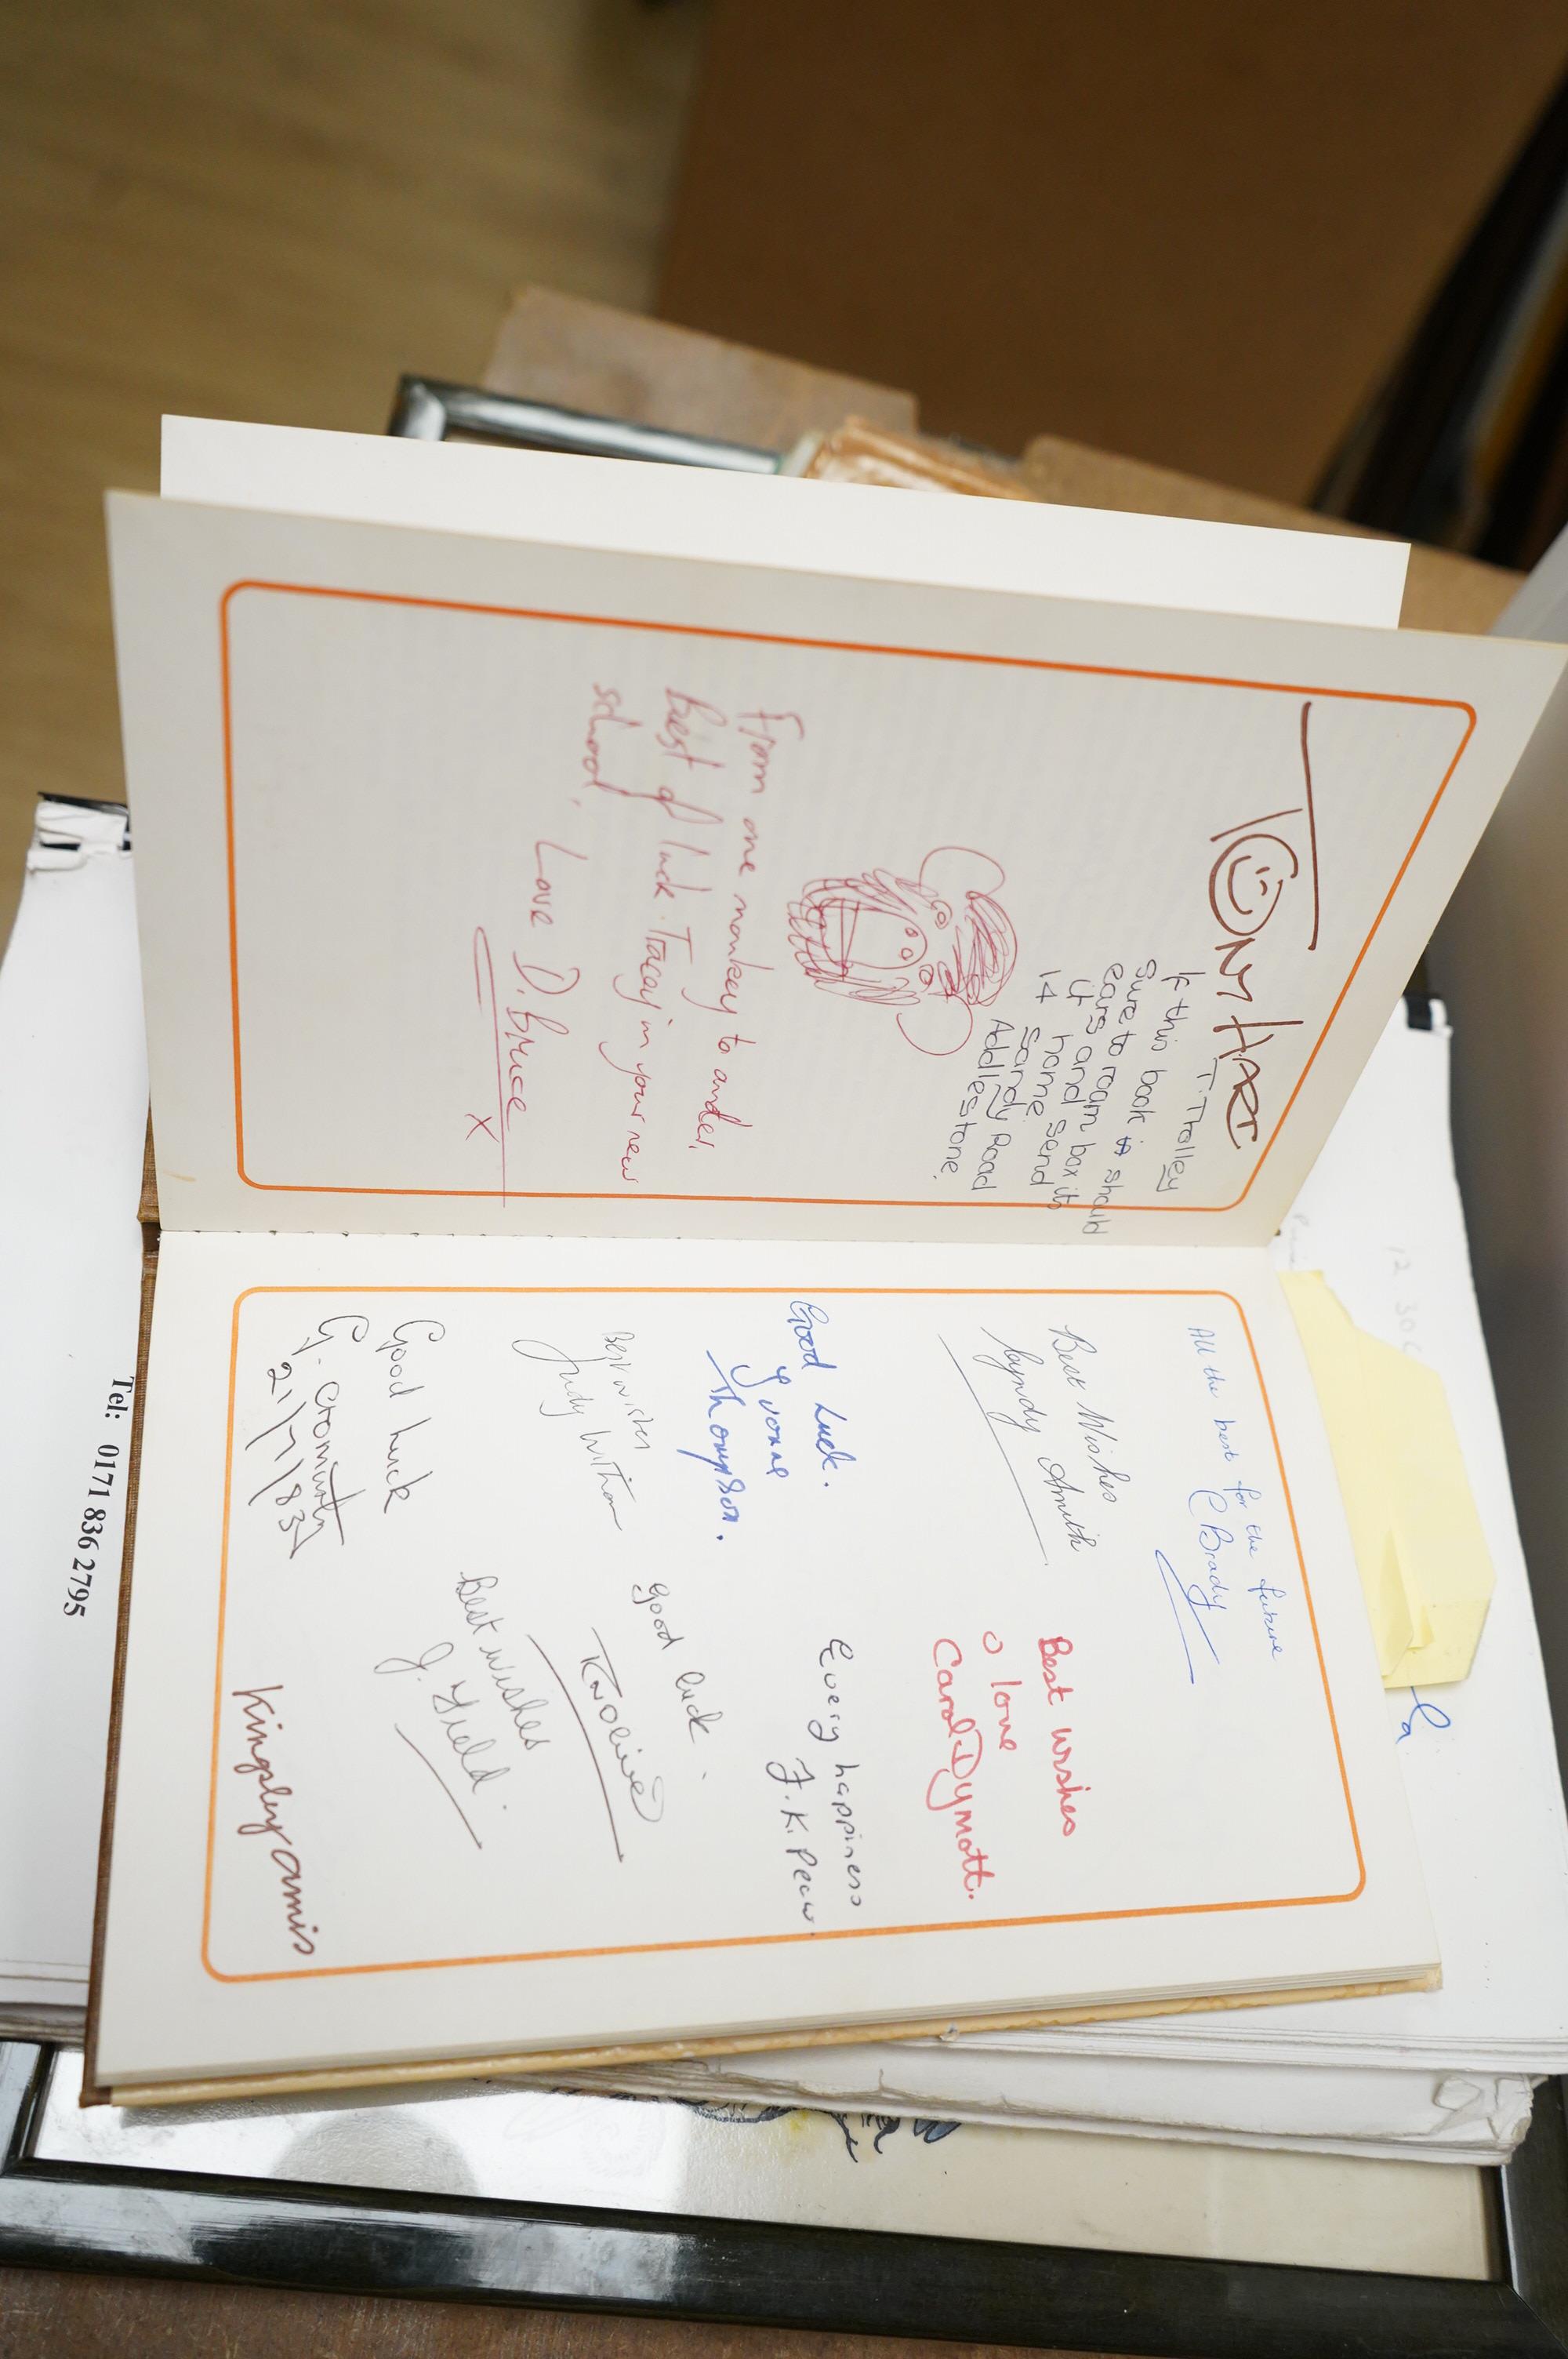 TONY HART
T. Trolley
If this book is should
Sure to roam box its
ears and send
it home
14 Sandy Road
Addlestone.
From one monkey to another,
Best of luck Tracey in your new
school,
Love D. Bruce
X
All the best for the future
C Brady
Best Wishes
Lyndy Smith
Best wishes
love
Carol Dymott.
Good Luck.
Yvonne
Thompson.
Every happiness
J. K.
Best wishes
Judy
good luck.
Good luck
G.
21/7/83
Best wishes
J. Field.
Kingsley Amis
Tel: 0171 836 2795
12 30
la